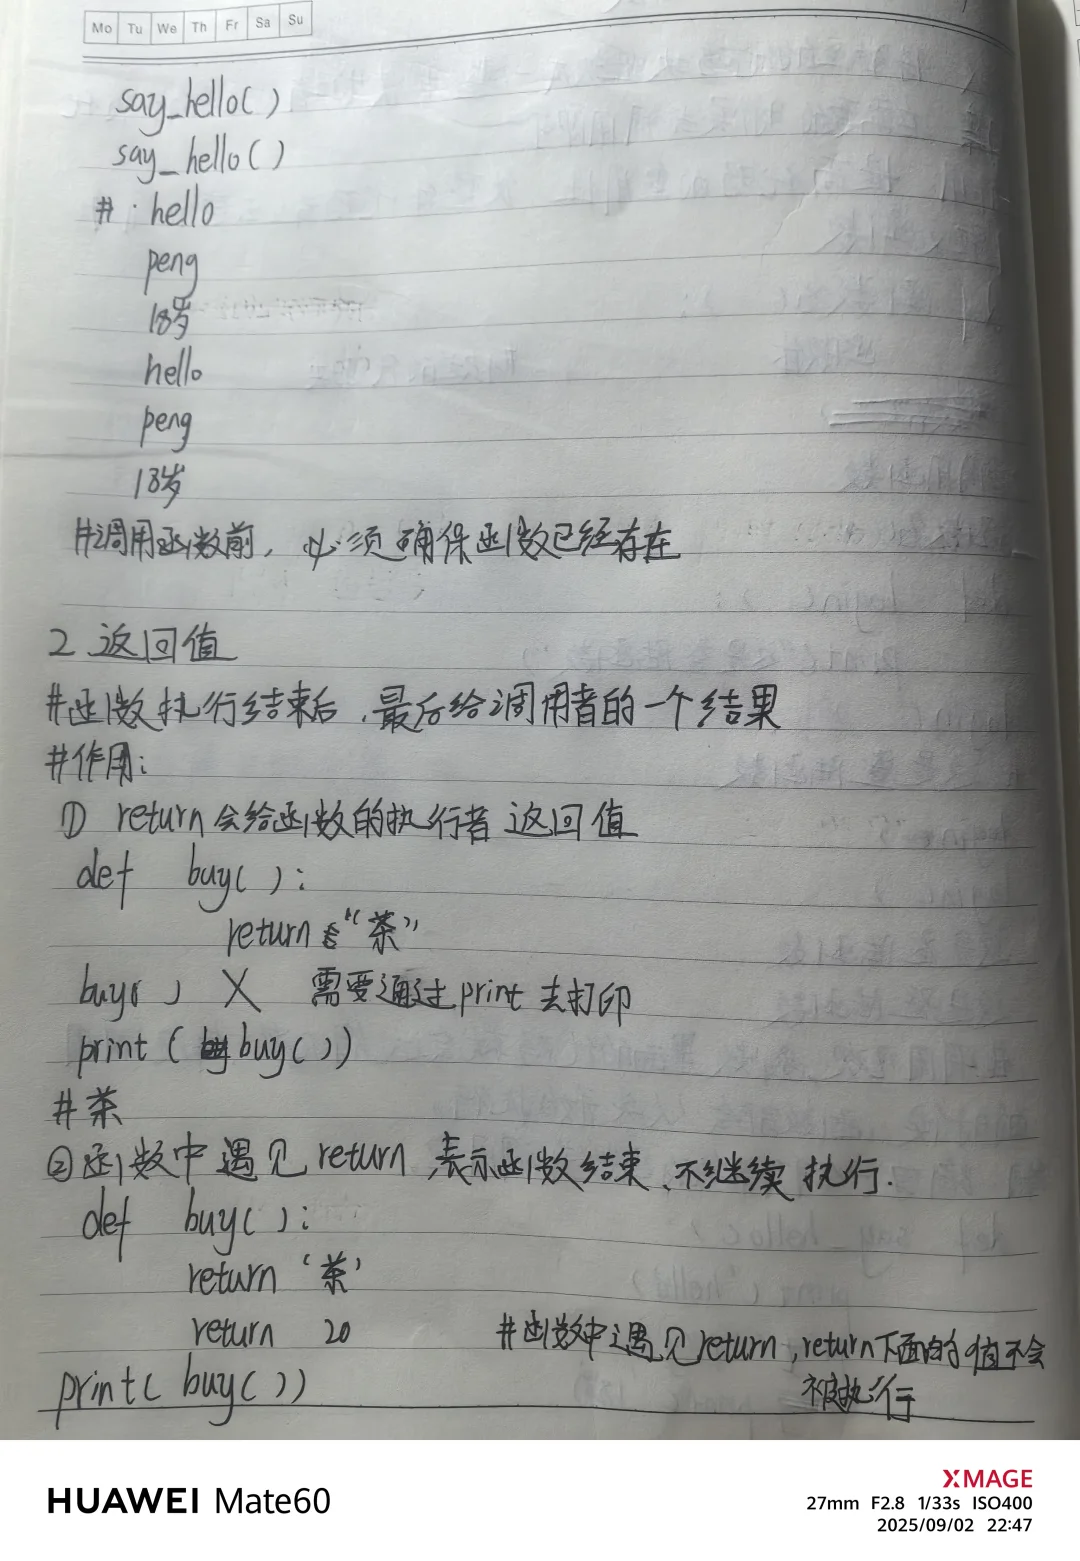 Mo Tu We Th Fr Sa Su
say_hello()
say_hello()
# hello
peng
18岁
hello
peng
18岁
#调用函数前，必须确保函数已经存在
2.返回值
#函数执行结束后，最后给调用者的一个结果
#作用：
① return会给函数的执行者 返回值
def buy():
return “茶”
buy() X 需要通过print去打印
print(buy())
#茶
②函数中遇见return，表示函数结束、不继续执行.
def buy():
return ‘茶’
return 20 #函数中遇见return，return下面的值不会
被执行
print(buy())
HUAWEI Mate60
XMAGE
27mm F2.8 1/33s ISO400
2025/09/02 22:47